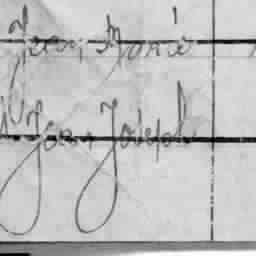 Jean, Marie
Jean Joseph